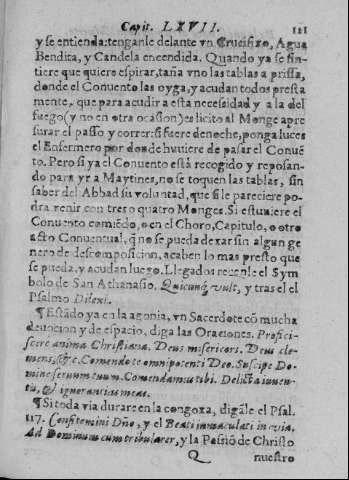 Capit. LXVII. 121
y se entienda: tenganle delante vn Crucifixo, Agua
Bendita, y Candela encendida. Quando ya se sin-
tiere que quiere espirar, taña vno las tablas a prissa,
donde el Conuento las oyga, y acudan todos presta
mente, que para acudir a esta necessidad y a la del
fuego (y no en otra ocasion) es licito al Monge apre
surar el passo y correr: si fuere de noche, ponga luces
el Enfermero por donde huuiere de pasar el Conuē
to. Pero si ya el Conuento està recogido y reposan-
do para yr a Maytines, no se toquen las tablas, sin
saber del Abbad su voluntad, que si le pareciere po
dra venir con tres o quatro Monges. Si estuuiere el
Conuento comiēdo, o en el Choro, Capitulo, o otro
acto Conuentual, q̃ no se pueda dexar sin algun ge
nero de descomposicion, acaben lo mas presto que
se pueda, y acudan luego. Llegados rezenle el Sym
bolo de San Athanasio. Quicunq́ vult, y tras el el
Psalmo Dilexi.
¶ Estādo ya en la agonia, vn Sacerdote cō mucha
deuocion y de espacio, diga las Oraciones. Profici-
scere anima Christiana. Deus misericors. Deus cle-
mens, &c. Comendo te omnipotenti Deo. Suscipe Do-
mine seruum tuum. Comendamus tibi. Delicta iuuen-
tu, & ignorantias meas.
¶ Si toda via durare en la congoxa, digāle el Psal.
117. Confitemini Dño, y el Beati immaculati in via.
Ad Dominum cum tribularer, y la Passiō de Christo
Q nuestro